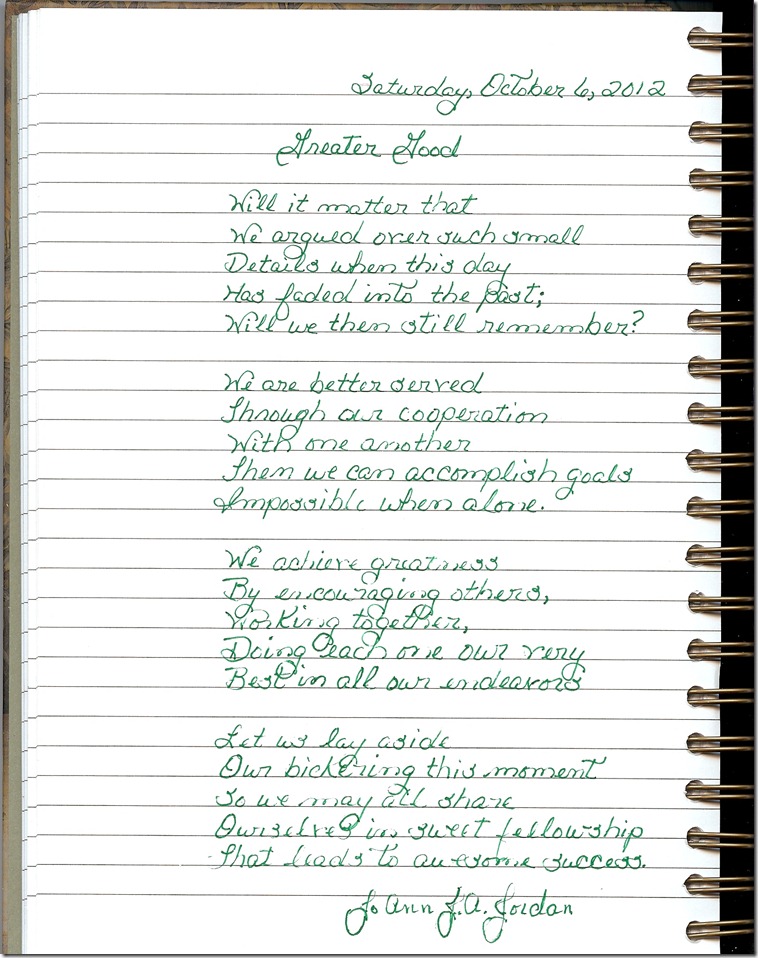 Saturday, October 6, 2012
Greater Good
Will it matter that
We argued over such small
Details when this day
Has faded into the past;
Will we then still remember?
We are better served
Through our cooperation
With one another
Then we can accomplish goals
Impossible when alone.
We achieve greatness
By encouraging others,
Working together,
Doing each one our very
Best in all our endeavors
Let us lay aside
Our bickering this moment
So we may all share
Ourselves in sweet fellowship
That leads to awesome success.
JoAnn J.A. Jordan